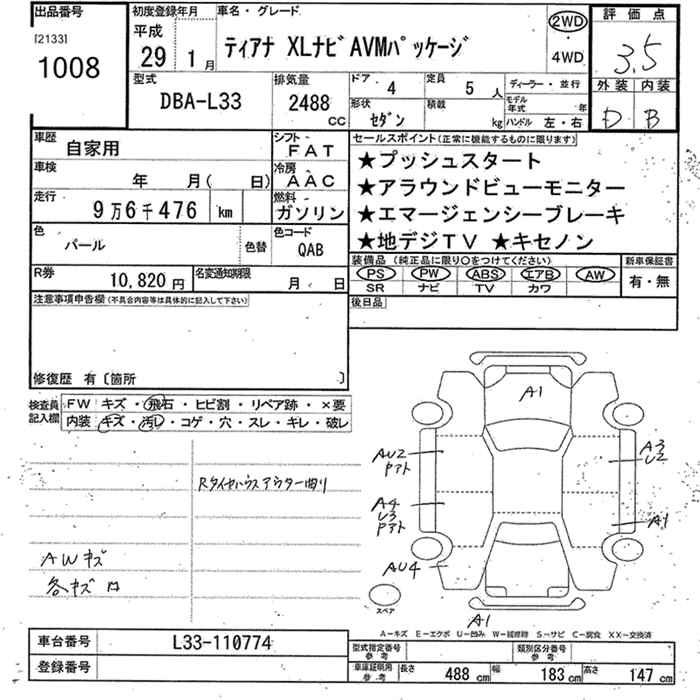 出品番号
[2133]
1008
初度登録年月
平成
29 1月
車名・グレード
ティアナ XLナビAVMパッケージ
2WD
4WD
評価点
3.5
外装 内装
D B
型式
DBA-L33
排気量
2488 CC
ドア 4
定員 5 人
形状 セダン
積載 kg
ディーラー・並行
モデル年式 年
ハンドル 左・右
車歴 自家用
シフト FAT
車検 年 月( 日)
冷房 AAC
走行 9万6千476 km
燃料 ガソリン
色 パール
色替
色コード QAB
R券 10,820円
名変通知期限 月 日
セールスポイント(正常に機能するものに限ります)
★プッシュスタート
★アラウンドビューモニター
★エマージェンシーブレーキ
★地デジTV ★キセノン
装備品(純正品に限り○をつけてください)
PS PW ABS エアB AW
SR ナビ TV カワ
新車保証書
有・無
後日品
注意事項申告欄(不具合内容等は具体的に記入して下さい)
修復歴 有〔箇所 〕
検査員記入欄
FW キズ・飛石・ヒビ割・リペア跡・×要
内装 キズ・汚レ・コゲ・穴・スレ・キレ・破レ
Rタイヤハウスアウター曲り
AWキズ
各キズ凹
A1
AU2
Pアト
A4
U3
Pアト
AU4
A3
U2
A1
A1
スペア
A-キズ E-エクボ U-凹み W-補修跡 S-サビ C-腐食 XX-交換済
車台番号 L33-110774
登録番号
型式指定番号
参考
類別区分番号
参考
車庫証明用
参考
長さ 488 cm
幅 183 cm
高さ 147 cm